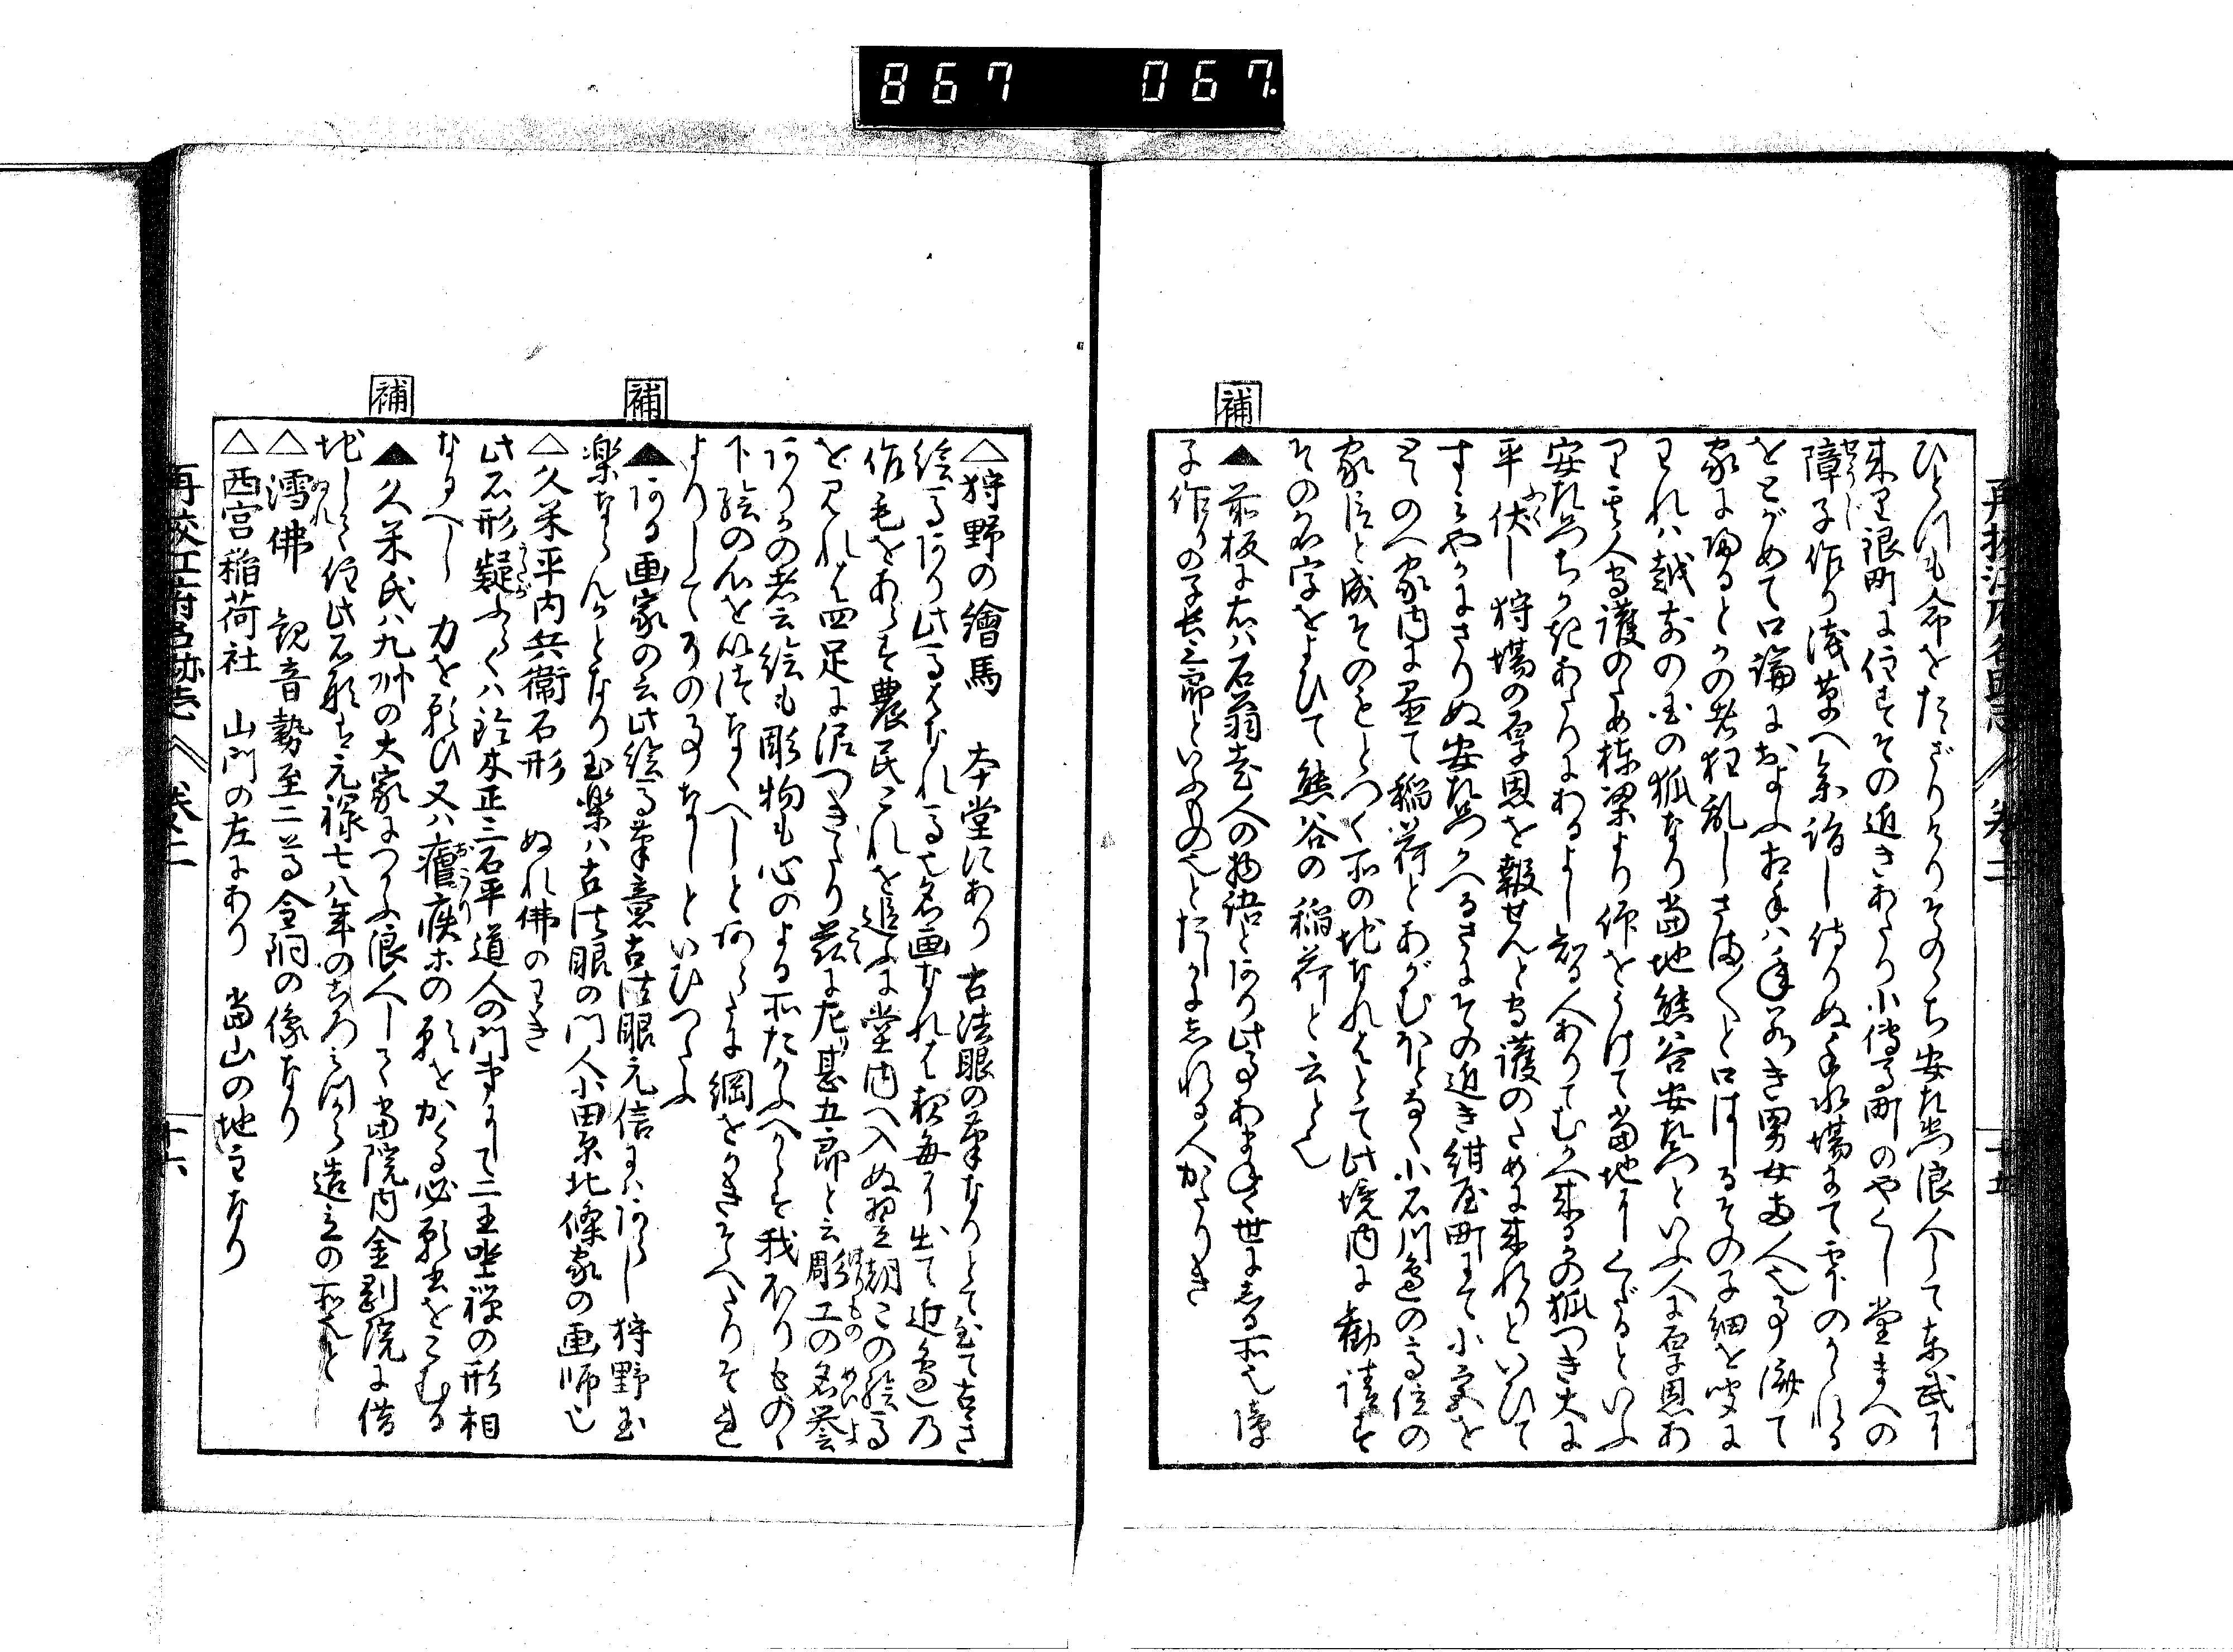 867 067
再校江戸名跡志 巻二 十五
ひとつも命をたばかりそのゝち安左衛門浪人して東武に
来り銀町に住すその近きあたり小傳馬町のやくし堂まへの
障子作り浅草へ参詣し侍りぬ手水場にて雫のかゝれる
をとがめて口論におよぶお手は年若き男女両人也事済て
家に帰るとかの者狂乱しさま〳〵と口ばしるその子細を聞に
われハ越前の国の狐なり当地熊谷安左衛門といふ人に厚恩あ
り其人守護のため棟梁より仰をうけて当地にくだるといふ
安左衛門ちか起あたりにあるよし知る人ありてむかへ来るかの狐つき大に
平伏し狩場の厚恩を報せんと守護のために来れりといひて
すミやかにさりぬ安左衛門かへるさにその近き紺屋町にて小宮を
もとめ家内に置て稲荷とあがむほとなく小石川辺の高位の
家臣と成そのもとつく所の地なれはとて此境内に勧請す
その名字をよびて熊谷の稲荷と云とぞ
補
▲前板に右ハ石翁老人の物語とあり此事あまねく世にしる所也障
子作りの子長三郎といふもの也とたしかに志れる人かたりき
△狩野の繪馬 本堂にあり 古法眼の筆なりとて至て古き
絵馬あり此馬はなれ馬也名画なれは夜毎に出て近辺の
作毛をあらす農民これを追ふに堂内へ入ぬ翌朝この絵馬
を見れは四足に泥つきたり茲に左甚五郎と云彫工の名誉
ありかの者云絵も彫物も心のよる所たかふへからす我ほりもの
下絵の心を以つなくへしとあらたに綱をかきそへたりそれ
よりして夜の事なしといひつたふ
補
▲ある画家の云此絵馬筆意古法眼元信にハあらし狩野玉
楽ならんかとなり玉楽ハ古法眼の門人小田原北條家の画師也
△久米平内兵衞石形 ぬれ佛のわき
此石形疑ふらくハ鈴木正三石平道人の門弟にて二王坐禅の形相
なるへし 力を願ひ又ハ瘧疾等の願をかくる必願書をこむる
補
▲久米氏ハ九州の大家につかふ浪人して当院内金剛院に借
地して住此石形は元禄七八年のころミつから造立の所也と
△濡佛 観音勢至二尊金銅の像なり
△西宮稲荷社 山門の左にあり 当山の地主なり
再校江戸名跡志 巻二 十六